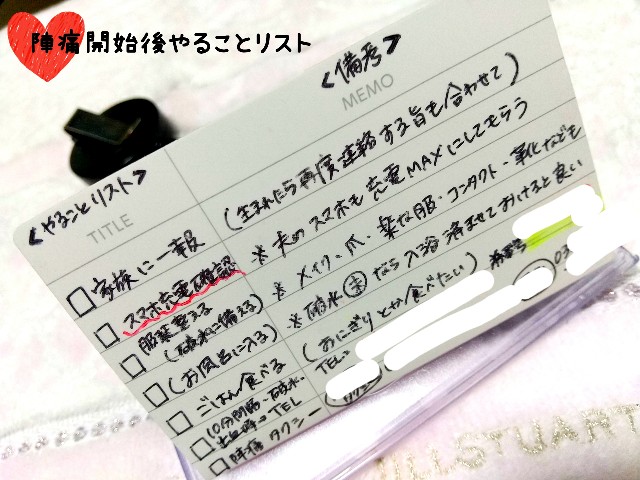 陣痛開始後やることリスト
<やることリスト>
<備考>
TITLE
MEMO
□家族に一報
(生まれたら再度連絡する旨も合わせて)
□スマホ充電確認
※夫のスマホも充電MAXにしてもらう
□服装整える
(破水に備える)
※メイク・爪・楽な服・コンタクト
□(お風呂に入る)
※破水未なら入浴済ませておけると良い
□ごはん食べる
(おにぎりとか食べたい)
□10分間隔・破水・
TEL
TEL:
03
□陣痛タクシー
タクシー
JILLSTUART